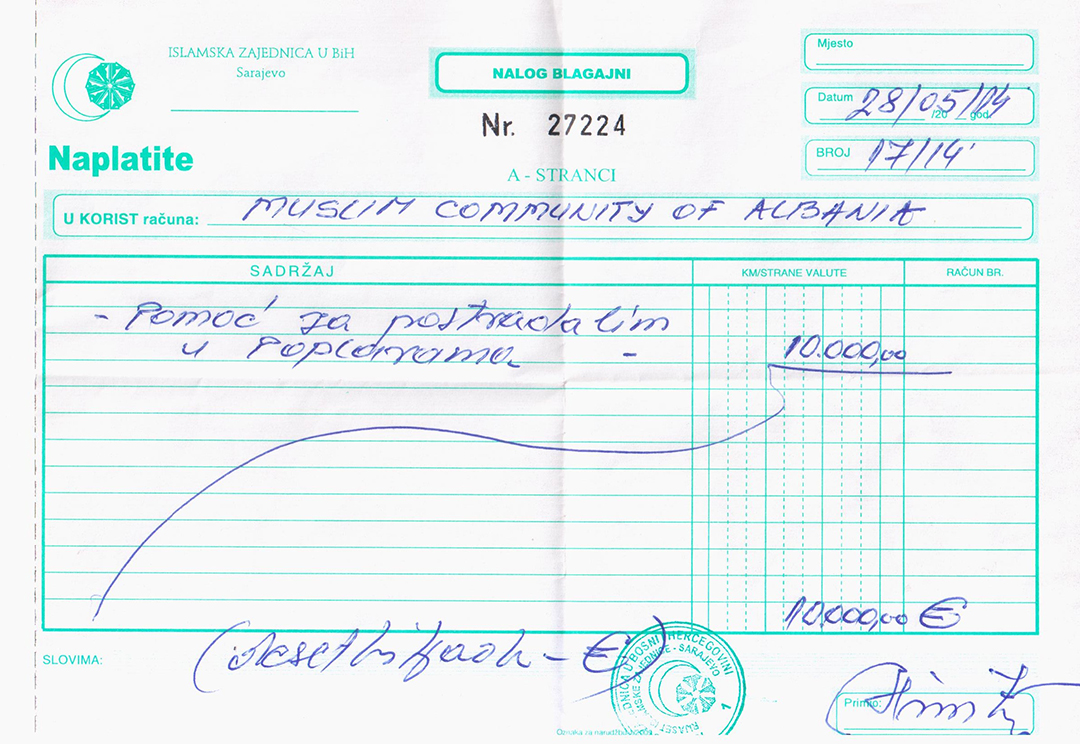 ISLAMSKA ZAJEDNICA U BiH
Sarajevo
NALOG BLAGAJNI
Mjesto
Datum 28/05/14
/20 god.
Nr. 27224
BROJ 17/14
Naplatite
A - STRANCI
U KORIST računa: MUSLIM COMMUNITY OF ALBANIA
SADRŽAJ KM/STRANE VALUTE RAČUN BR.
- Pomoć za postradalim
u Poplavama - 10.000,00
10.000,00 €
SLOVIMA: (deset hiljada - €)
BOSNI I HERCEGOVINI
RIJASET ISLAMSKE ZAJEDNICE - SARAJEVO
1
Primio: